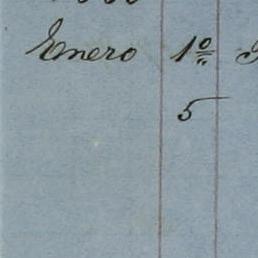 Enero 1º
5